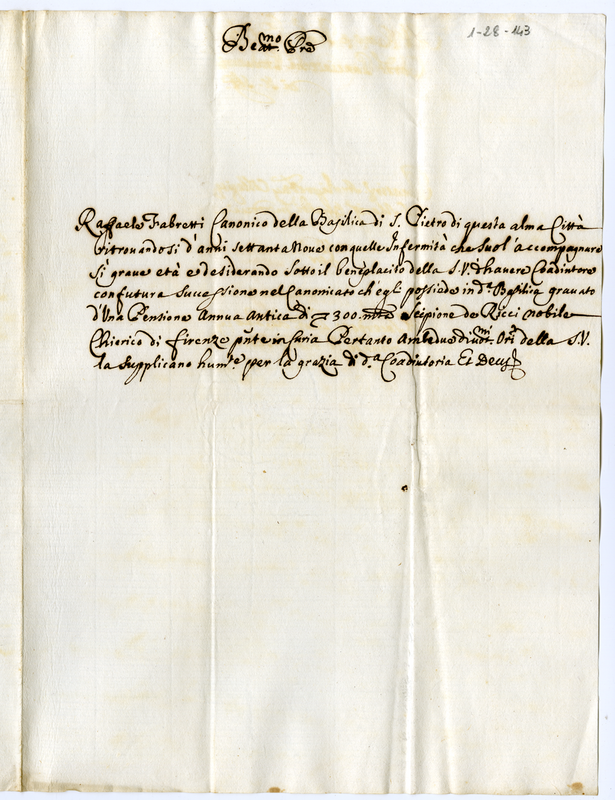 1-28-143
Beat.mo Pre
Raffaele Fabretti Canonico della Basilica di S. Pietro di questa alma Città
ritrovandosi d'anni settantanove con quelle Infermità che suol'accompagnare
si grave età e desiderando sotto il beneplacito della S.V. d'havere Coadiutore
con futura successione nel Canonicato ch'egli possiede in d.a Basilica gravato
d'Una Pensione Annua Antica di 300. Scipione de Ricci nobile
Chierico di firenze pnte in Curia Pertanto Ambedue divot.mi Ori della S.V.
la supplicano hum.e per la grazia di d.a Coadiutoria Et Deus